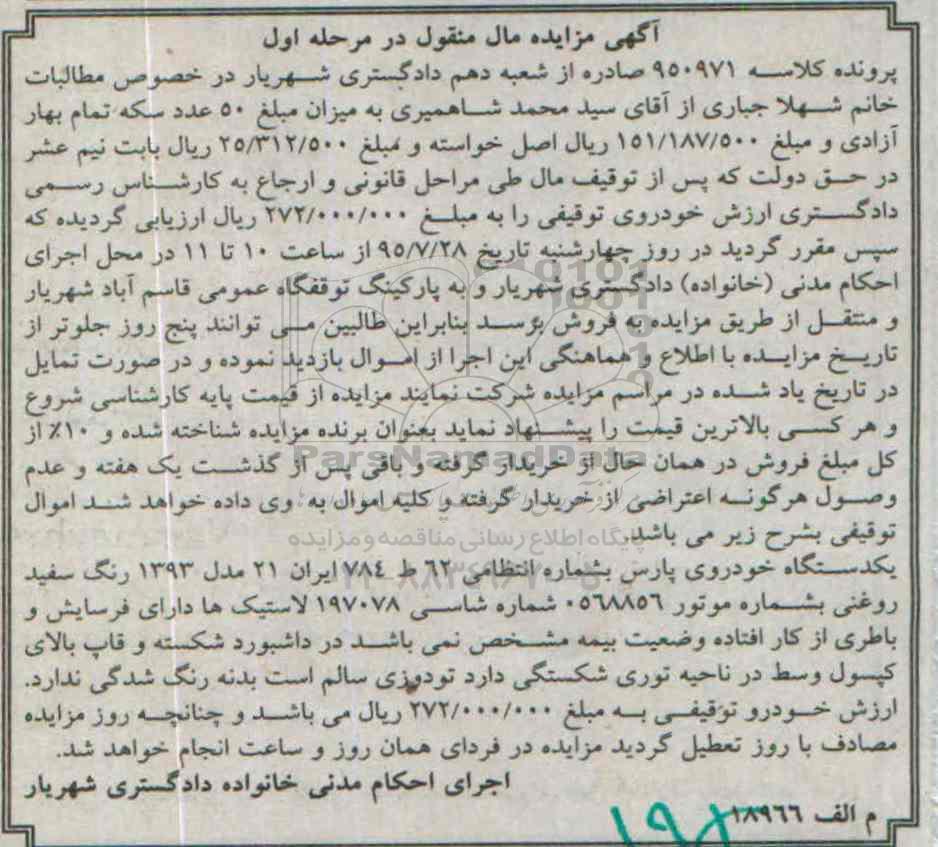 آگهی مزایده مال منقول در مرحله اول
پرونده کلاسه ۹۵۰۹۷۱ صادره از شعبه دهم دادگستری شهریار در خصوص مطالبات
خانم شهلا جباری از آقای سید محمد شاهمیری به میزان مبلغ ۵۰ عدد سکه تمام بهار
آزادی و مبلغ ۱۵۱/۱۸۷/۵۰۰ ریال اصل خواسته و مبلغ ۲۵/۳۱۲/۵۰۰ ریال بابت نیم عشر
در حق دولت که پس از توقیف مال طی مراحل قانونی و ارجاع به کارشناس رسمی
دادگستری ارزش خودروی توقیفی را به مبلغ ۲۷۲/۰۰۰/۰۰۰ ریال ارزیابی گردیده که
سپس مقرر گردید در روز چهارشنبه تاریخ ۹۵/۷/۲۸ از ساعت ۱۰ تا ۱۱ در محل اجرای
احکام مدنی (خانواده) دادگستری شهریار و به پارکینگ توقفگاه عمومی قاسم آباد شهریار
و منتقل از طریق مزایده به فروش برسد بنابراین طالبین می توانند پنج روز جلوتر از
تاریخ مزایده با اطلاع و هماهنگی این اجرا از اموال بازدید نموده و در صورت تمایل
در تاریخ یاد شده در مراسم مزایده شرکت نمایند مزایده از قیمت پایه کارشناسی شروع
و هر کسی بالاترین قیمت را پیشنهاد نماید بعنوان برنده مزایده شناخته شده و ۱۰٪ از
ParsNamadData
کل مبلغ فروش در همان حال از خریدار گرفته و باقی پس از گذشت یک هفته و عدم
وصول هرگونه اعتراضی از خریدار گرفته و کلیه اموال به وی داده خواهد شد اموال
توقیفی بشرح زیر می باشد
پایگاه اطلاع رسانی مناقصه و مزایده
یکدستگاه خودروی پارس بشماره انتظامی ۶۲ ط ۷۸۴ ایران ۲۱ مدل ۱۳۹۳ رنگ سفید
روغنی بشماره موتور ۰۵۶۸۸۵۶ شماره شاسی ۱۹۷۰۷۸ لاستیک ها دارای فرسایش و
باطری از کار افتاده وضعیت بیمه مشخص نمی باشد در داشبورد شکسته و قاپ بالای
کپسول وسط در ناحیه توری شکستگی دارد تودوزی سالم است بدنه رنگ شدگی ندارد.
ارزش خودرو توقیفی به مبلغ ۲۷۲/۰۰۰/۰۰۰ ریال می باشد و چنانچه روز مزایده
مصادف با روز تعطیل گردید مزایده در فردای همان روز و ساعت انجام خواهد شد.
اجرای احکام مدنی خانواده دادگستری شهریار
م الف ۱۸۹۶۶